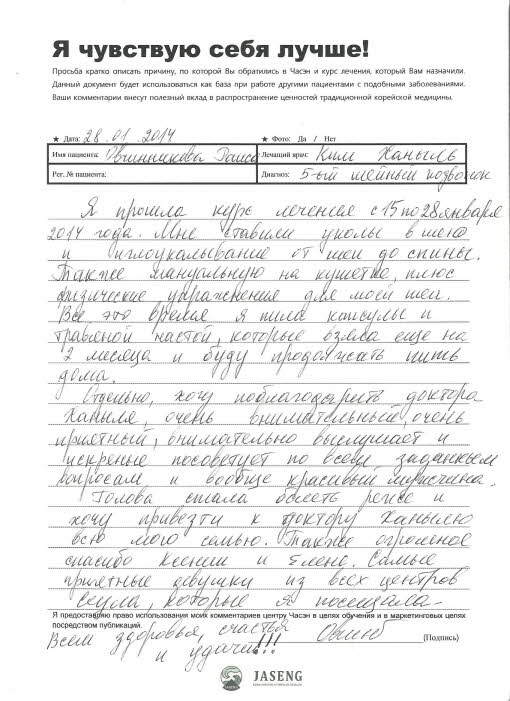 Я чувствую себя лучше!
Просьба кратко описать причину, по которой Вы обратились в Часэн и курс лечения, который Вам назначили.
Данный документ будет использоваться как база при работе другими пациентами с подобными заболеваниями.
Ваши комментарии внесут полезный вклад в распространение ценностей традиционной корейской медицины.
★ Дата: 28.01.2014 ★ Фото: Да / Нет
Имя пациента: Овчинникова Раиса Лечащий врач: Ким Ханыль
Рег. № пациента: Диагноз: 5-ый шейный позвонок
Я прошла курс лечения с 15 по 28 января
2014 года. Мне ставили уколы в шею
и иглоукалывание от шеи до спины.
Также мануальную на кушетке, плюс
физические упражнения для моей шеи.
Все это время я пила капсулы и
травяной настой, которые взяла еще на
2 месяца и буду продолжать пить
дома.
Отдельно, хочу поблагодарить доктора
Ханыля, очень внимательный, очень
приятный, внимательно выслушает и
искренне посоветует по всем заданным
вопросам, и вообще красивый мужчина.
Голова стала болеть реже и
хочу привезти к доктору Ханылю
всю мою семью. Также огромное
спасибо Ксении и Елене. Самые
приятные девушки из всех центров
Сеула, которые я посещала-
Я предоставляю право использования моих комментариев центру Часэн в целях обучения и в маркетинговых целях
посредством публикаций.
Всем здоровья, счастья
и удачи!!! (Подпись)
JASENG